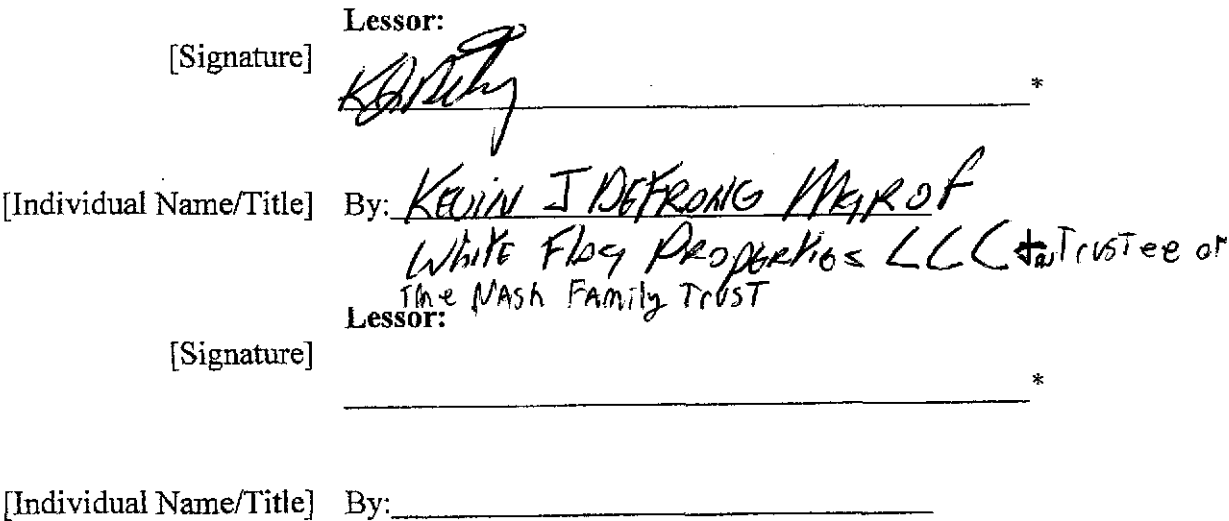 Lessor:
[Signature]
*
[Individual Name/Title] By: KEVIN J DEFRONG MGR OF
WhiTE Flag PROPERTIES LLC + TrusTee of
The NAsh FAmily TrUST
Lessor:
[Signature]
*
[Individual Name/Title] By: